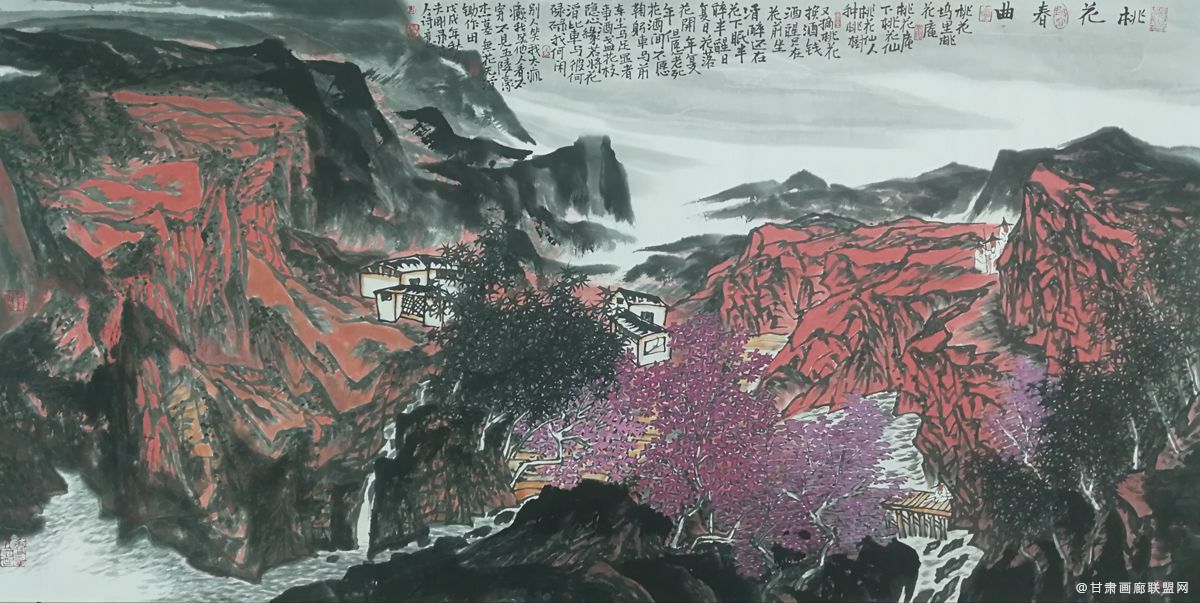 桃花春曲
桃花
坞里桃
花庵
桃花庵
下桃花仙
桃花仙人
种桃樹
又摘桃花
酒钱
酒醒只在
花前坐
醉还在
花下眠半
醉半醒日
复日花落
花開年复
年但愿老死
花酒间不愿
鞠躬車马前
车尘马足显者
事酒盏花枝
隐士缘若将花
酒比車马彼何
碌碌我何闲
别人笑我太疯
癫我笑他人看不
穿不見五陵豪
杰墓無花無酒
锄作田
戊戌年秋
@甘肃画廊联盟网